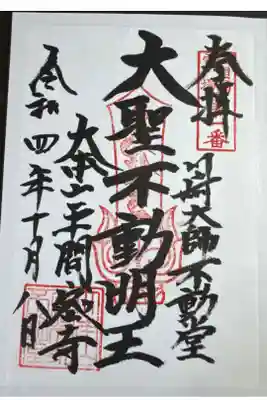 奉拝
番
川崎大師不動堂
大聖不動明王
大本山平間寺
令和四年十月八日